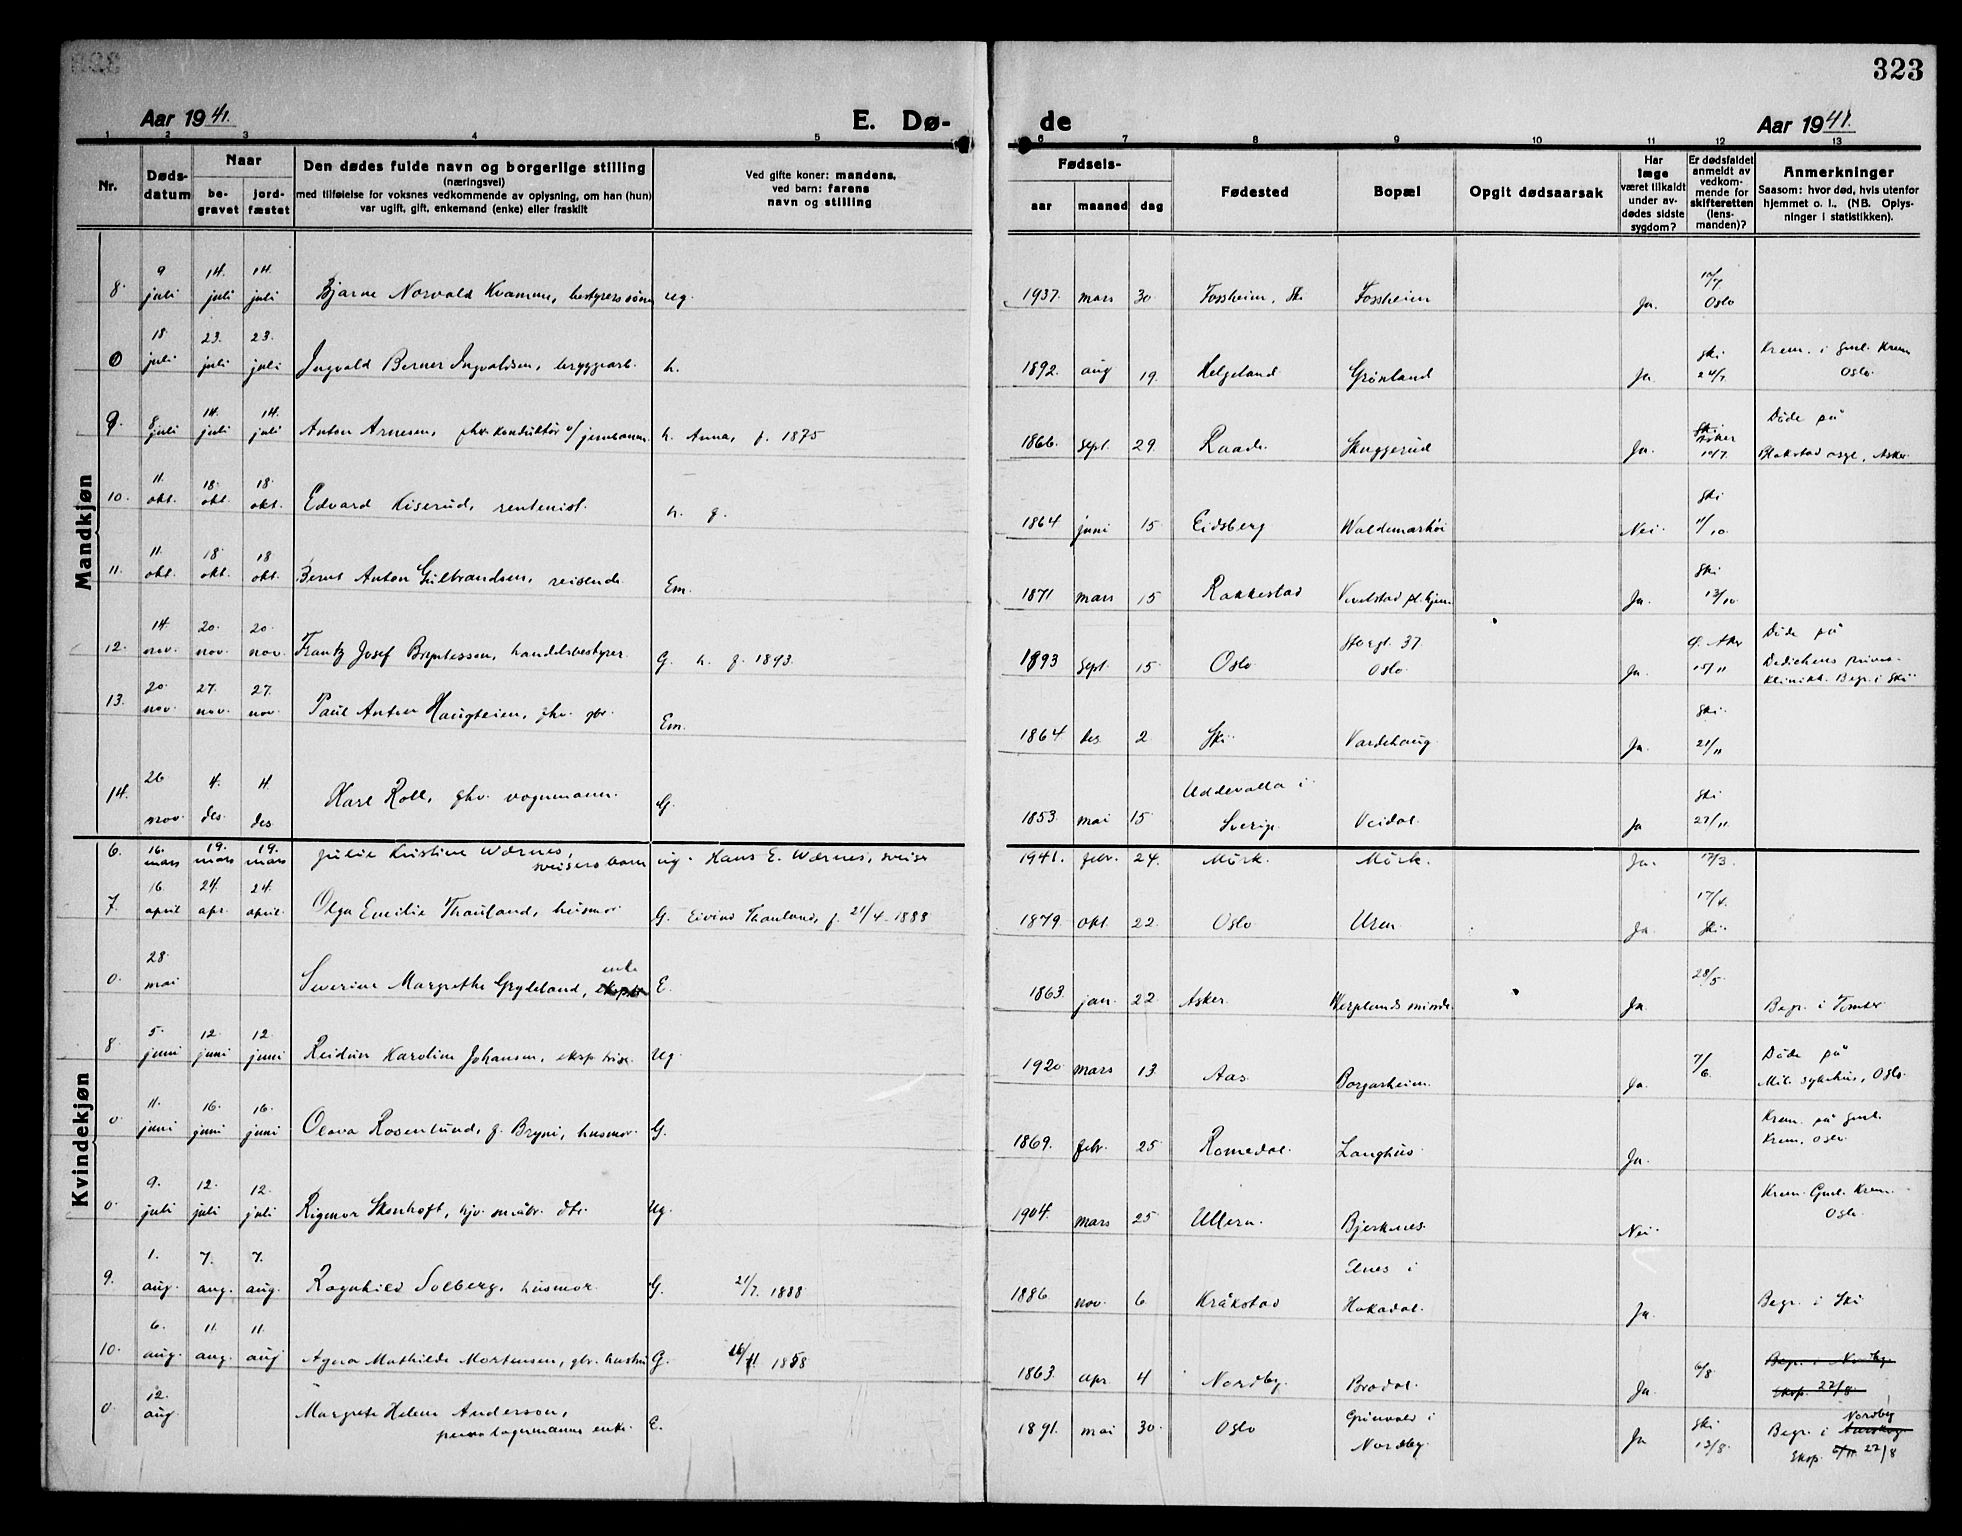 323
Aar 1941.
E. Dø-
de
Aar 1941.
1 2 3 4 5 6 7 8 9 10 11 12 13
Nr.
Døds-
datum
Naar
be-
gravet
jord-
fæstet
Den dødes fulde navn og borgerlige stilling
(næringsvei)
med tilføielse for voksnes vedkommende av oplysning, om han (hun)
var ugift, gift, enkemand (enke) eller fraskilt
Ved gifte koner: mandens,
ved barn: farens
navn og stilling
Fødsels-
aar maaned dag
Fødested
Bopæl
Opgit dødsaarsak
Har
læge
været tilkaldt
under av-
dødes sidste
sygdom?
Er dødsfaldet
anmeldt av
vedkom-
mende for
skifteretten
(lens-
manden)?
Anmerkninger
Saasom: hvor død, hvis utenfor
hjemmet o. l., (NB. Oplys-
ninger i statistikken).
Mandkjøn
8. 9 juli 14. juli 14. juli Bjarne Norvald Kvamme, bestyrers sønn ug. 1937. mars 30 Fossheim, Ski Fossheim Ja. 10/7 Oslo
0 18. juli 23. juli 23. juli Ingvald Berner Ingvaldsen, bryggearb. h. 1892. aug 19. Helgeland Grønland Ja Ski 24/7 Krem. i Gml. Krem Oslo.
9. 8 juli 14. juli 14. juli Anton Arnesen, fhv. konduktør v/ jernbanen. h. Anna, f. 1875 1866. sept. 29. Raade. Skuggerud Ja. Ski Asker 10/7. Døde på Blakstad asyl, Asker
10. 11. okt. 18. okt. 18. okt. Edvard Kiserud, rentenist. h. g. 1864 juni 15 Eidsberg Waldemarhøi Nei. Ski 11/10.
11. 11. okt. 18. okt. 18 okt. Bernt Anton Gulbrandsen, reisende Em. 1871 mars 15 Rakkestad Vevelstad pl.hjem Ja. Ski 13/10.
12. 14. nov. 20. nov. 20. nov. Frantz Josef Bryntessen, handelsbestyrer G. h. f. 1893. 1893 sept. 15 Oslo Storgt. 37 Oslo. Ja Ø. Aker 15/11 Døde på Dedichens privat-klinikk. Begr. i Ski
13. 20. nov. 27. nov. 27. nov. Paul Anton Haugteien, fhv. gbr. Em. 1864 des 2 Ski Vardehaug. Ja Ski. 21/11
14. 26 nov. 4. des 4. des Karl Roll, fhv. vognmann. G. 1853. mai 15 Uddevalla i Sverige Veidal. Ja Ski 27/11.
Kvindekjøn
6. 16. mars 19. mars 19. mars Julie Kristine Wærnes, sveisers barn ug. Hans E. Wærnes, sveiser 1941. febr. 24. Mörk. Mörk. Ja. 17/3.
7. 16. april 24. apr. 24. april. Olga Emilie Thauland, husmor G. Eivind Thauland, f. 21/4-1888 1879. okt. 22. Oslo Uren Ja. 17/4. Ski.
0. 28. mai Severine Margrethe Grydeland, enke E. 1863. jan. 22. Asker. Werplands minde. Ja. 28/5. Begr. i Tomter.
8 5. juni 12. juni 12. juni Reidun Karoline Johansen, eksp.trise. Ug. 1920 mars 13 Aas Borgarheim. Ja 7/6. Døde på Mil. sykehus, Oslo.
0 11. juni 16. juni 16. juni Olava Rosenlund, f. Bryni, husmor. G. 1869. febr. 25 Romedal. Langhus Ja. Krem. på Gml. Krem, Oslo
0. 9. juli 12. juli 12. juli Rigmor Skenhoft, hjv. småbr. dtr. Ug. 1904. mars 25 Ullern. Bjerknes. Nei Krem. Gml. Krem. Oslo.
9. 1. aug. 7. aug. 7. aug. Ragnhild Solberg, husmor. G. 21/7. 1888 1886 nov. 6 Kråkstad Elnes i Hakadal. Ja. Begr. i Ski
10. 6. aug. 11. aug. 11. aug Agna Mathilde Mortensen, gbr. hustru G. 26/11 1858 1863. apr. 4 Nordby. Brødal. Ja. 6/8 Begr. i Nordby Eksp. 22/8.
0. 12. aug. Margrete Helene Anderson, enke. E. 1891. mai 30. Oslo Grönvold i Nordby. Ja Ski 13/8. Begr. i Nordby Eksp. 22/8